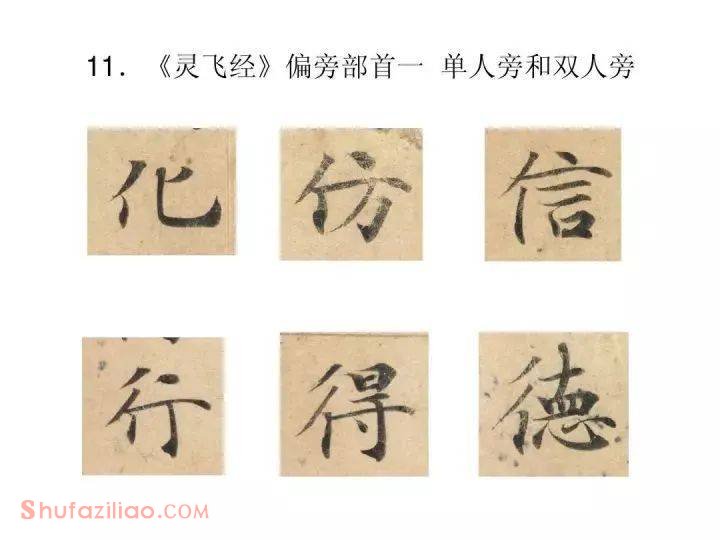 11．《灵飞经》偏旁部首一 单人旁和双人旁
化 仿 信
行 得 德
Shufaziliao.com